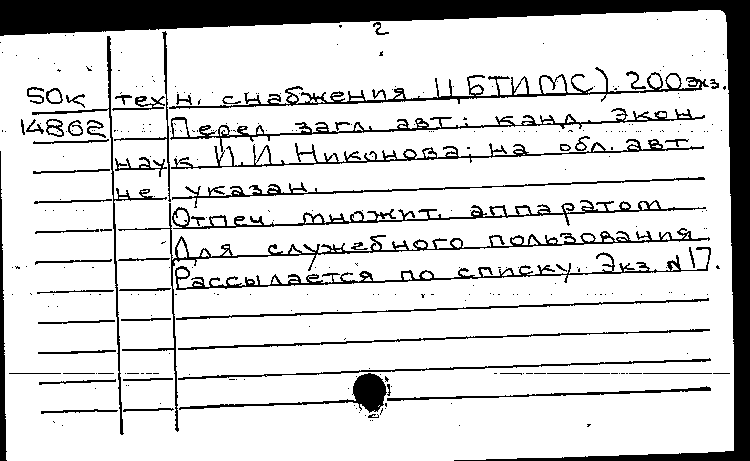 2
50к техн. снабжения. ЦБТИМС). 200экз.
14862 Перед загл. авт.: канд. экон
наук И.И. Никонова; на обл. авт
не указан.
Отпеч. множит. аппаратом
Для служебного пользования
Рассылается по списку. Экз. №17.